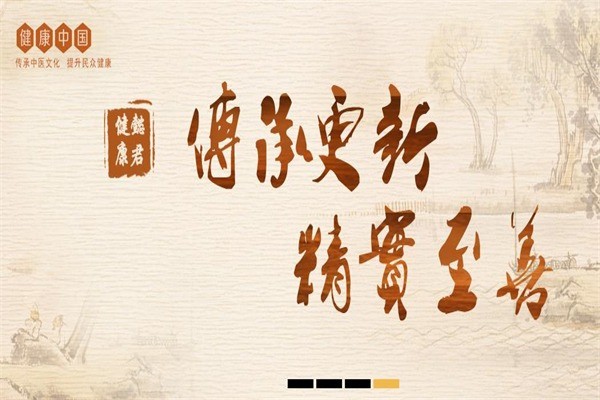 健康中国
传承中医文化 提升民众健康
懿君
健康
傳承更新
精實至善